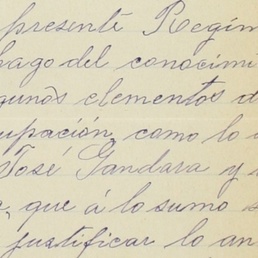 presente Regim
hago del conocimi
gunos elementos d
upación, como lo
José Gandara y
que á lo sumo s
justificar lo an